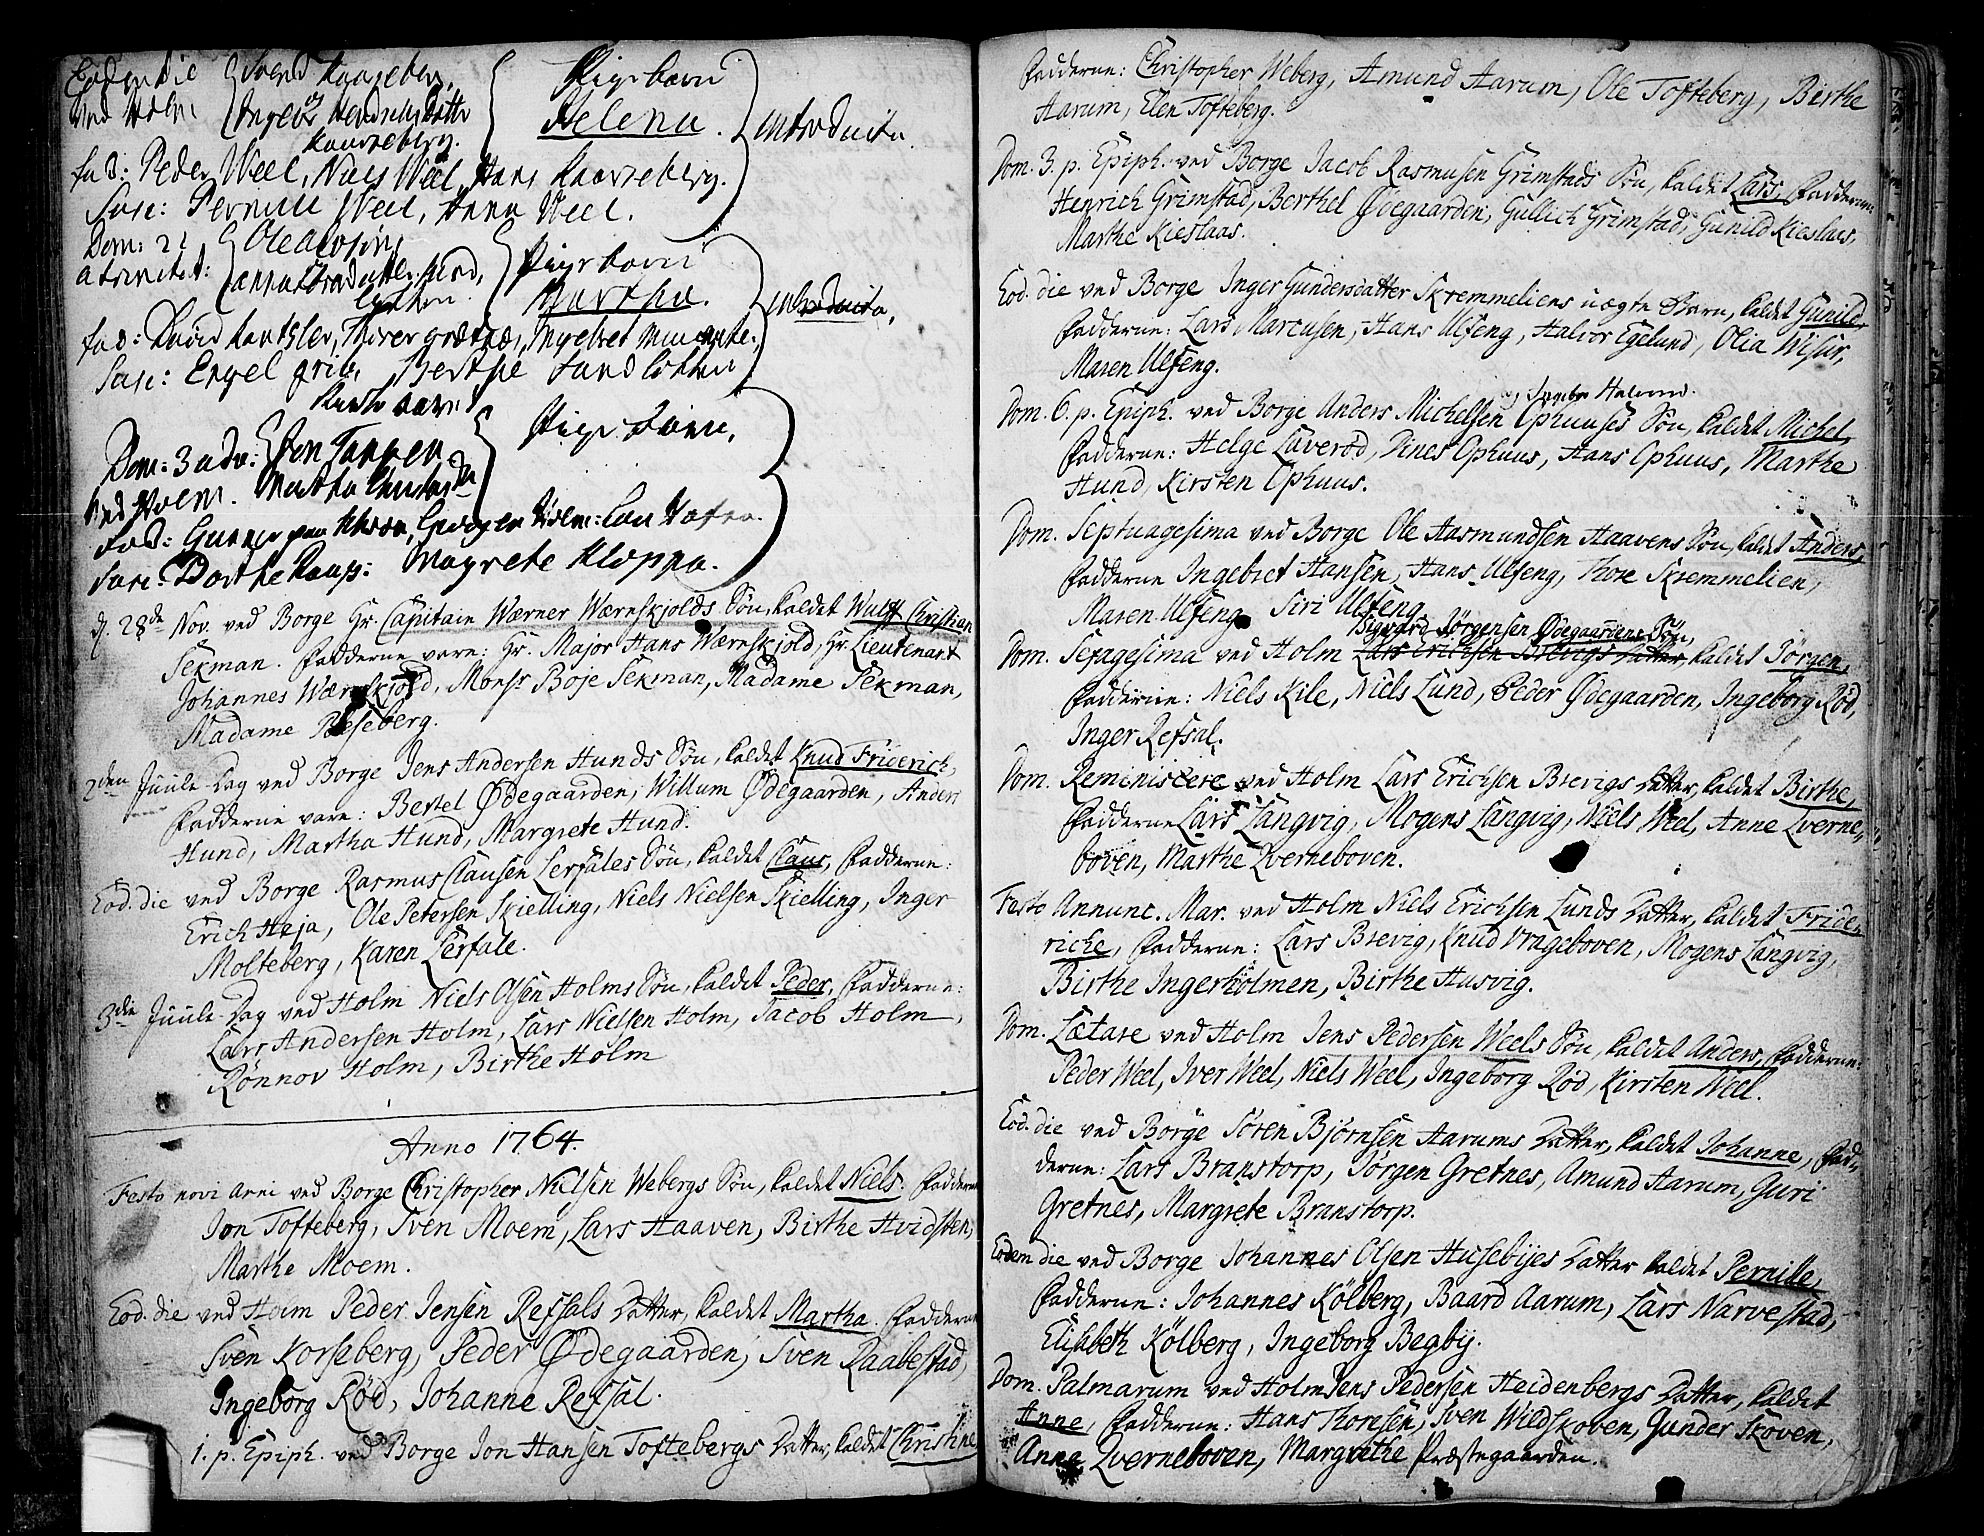 Eodem die { Svend Kaarseberg, { Pigebarn } introducta.
ved Holm { Ingebor Hendrichsdatter { Helena.
Kaarseberg.
fad: Peder Weel, Niels Weel, Hans Kaarseberg.
Sare: Pernille Weel, Anna Weel.
Dom: 21 { Ole { Pigebarn } introducta,
a trinitat: { { Martha.
fad: David
Sare: Engel Berthe
Dom: 3 adv: { Jon Tangen { Pige barn,
ved Holm. Martha
Fad: Gunder
Sare: Dorthe Margrete Kloppa.
d. 28de Nov. ved Borge Hr. Capitain Werner Wærnskjolds Søn, kaldet Wulff Christian
Sekman. Fadderne vare: Hr. Major Hans Wærnskjold, Hr. Lieutenant
Johannes Wærnskjold, Monsr Boje Sekman, Madame Sekman,
Madame
2den Juule-Dag ved Borge Jens Andersen Hunds Søn, kaldet Knud Friderich,
Fadderne vare: Bertel Ødegaarden, Willum Ødegaarden, Anders
Hund, Martha Hund, Margrete Hund.
Eod. die ved Borge Rasmus Clausen Lerfales Søn, kaldet Claus, Fadderne:
Erich Haja, Ole Petersen Skielling, Niels Nielsen Skielling, Inger
Molteberg, Karen Lerfale.
3die Juule-Dag ved Holm Niels Olsen Holms Søn, kaldet Peder, Fadderne:
Lars Andersen Holm, Lars Nielsen Holm, Jacob Holm,
Rønnov Holm, Birthe Holm
Anno 1764.
Festo novi Anni ved Borge Christopher Nielsen Webergs Søn, kaldet Niels. Fadderne
Jon Tofteberg, Sven Moem, Lars Haaven, Birthe Hvidsten,
Marthe Moem.
Eod. die ved Holm Peder Jensen Refsals Datter, kaldet Martha. Fadderne
Sven Korseberg, Peder Ødegaarden, Sven Raabestad,
Ingeborg Rød, Johanne Refsal.
1. p. Epiph. ved Borge Jon Hansen Toftebergs Datter, kaldet Christine
Fadderne: Christopher Weberg, Amund Aarum, Ole Tofteberg, Birthe
Aarum, Elen Tofteberg.
Dom. 3. p. Epiph. ved Borge Jacob Rasmusen Grimstads Søn, kaldet Lars, Fadderne:
Henrich Grimstad, Berthel Ødegaarden, Gullich Grimstad, Gunild Kieslaas,
Marthe Kieslaas.
Eod. die ved Borge Inger Gundersdatter Skremmeliens uægte Barn, kaldet Gunild,
Fadderne: Lars Marcusen, Hans Ulfeng, Halvor Egelund, Olia Wisur,
Maren Ulfeng.
Dom. 6. p. Epiph. ved Borge Anders Michelsen Ophuuses Søn, kaldet Michel,
Fadderne: Helge Laverød, Dines Ophuus, Hans Ophuus, Marthe
Hund, Kirsten Ophuus.
Dom. Septuagesima ved Borge Ole Aasmundsen Haavens Søn, kaldet Anders,
Fadderne Ingebret Hansen, Hans Ulfeng, Thore Skremmelien,
Maren Ulfeng, Siri Ulfeng.
Sigvard Jørgensen Ødegaardens Søn,
Dom. Sexagesima ved Holm Lars Erichsen Brevigs Datter, kaldet Jørgen,
Fadderne: Niels Kile, Niels Lund, Peder Ødegaarden, Ingeborg Rød,
Inger Refsal.
Dom. Reminiscere ved Holm Lars Erichsen Brevigs Datter, kaldet Birthe,
Fadderne Lars Langvig, Mogens Langvig, Niels Weel, Anne Qverne-
boven, Marthe Qverneboven.
Festo Annunc. Mar. ved Holm Niels Erichsen Lunds Datter, kaldet Fride-
riche, Fadderne: Lars Brevig, Knud Vrageboven, Mogens Langvig,
Birthe Ingerholmen, Birthe Husvig.
Dom. Lætare ved Holm Jens Pedersen Weels Søn, kaldet Anders, Fadderne:
Peder Weel, Iver Weel, Niels Weel, Ingeborg Rød, Kirsten Weel.
Eod. die ved Borge Søren Bjørnsen Aarums Datter, kaldet Johanne, Fad-
derne: Lars Branstorp, Jørgen Gretnes, Amund Aarum, Guri
Gretnes, Margrete Branstorp.
Eodem die ved Borge Johannes Olsen Husebÿes Datter kaldet Pernille,
Fadderne: Johannes Kölberg, Baard Aarum, Lars Narvestad,
Elisabeth Kölberg, Ingeborg Begbÿ.
Dom. Palmarum ved Holm Jens Pedersen Heidenbergs Datter, kaldet
Anne, Fadderne: Hans Thoresen, Sven Wildskoven, Gunder Skoven,
Anne Qverneboven, Margrethe Præstegaarden.